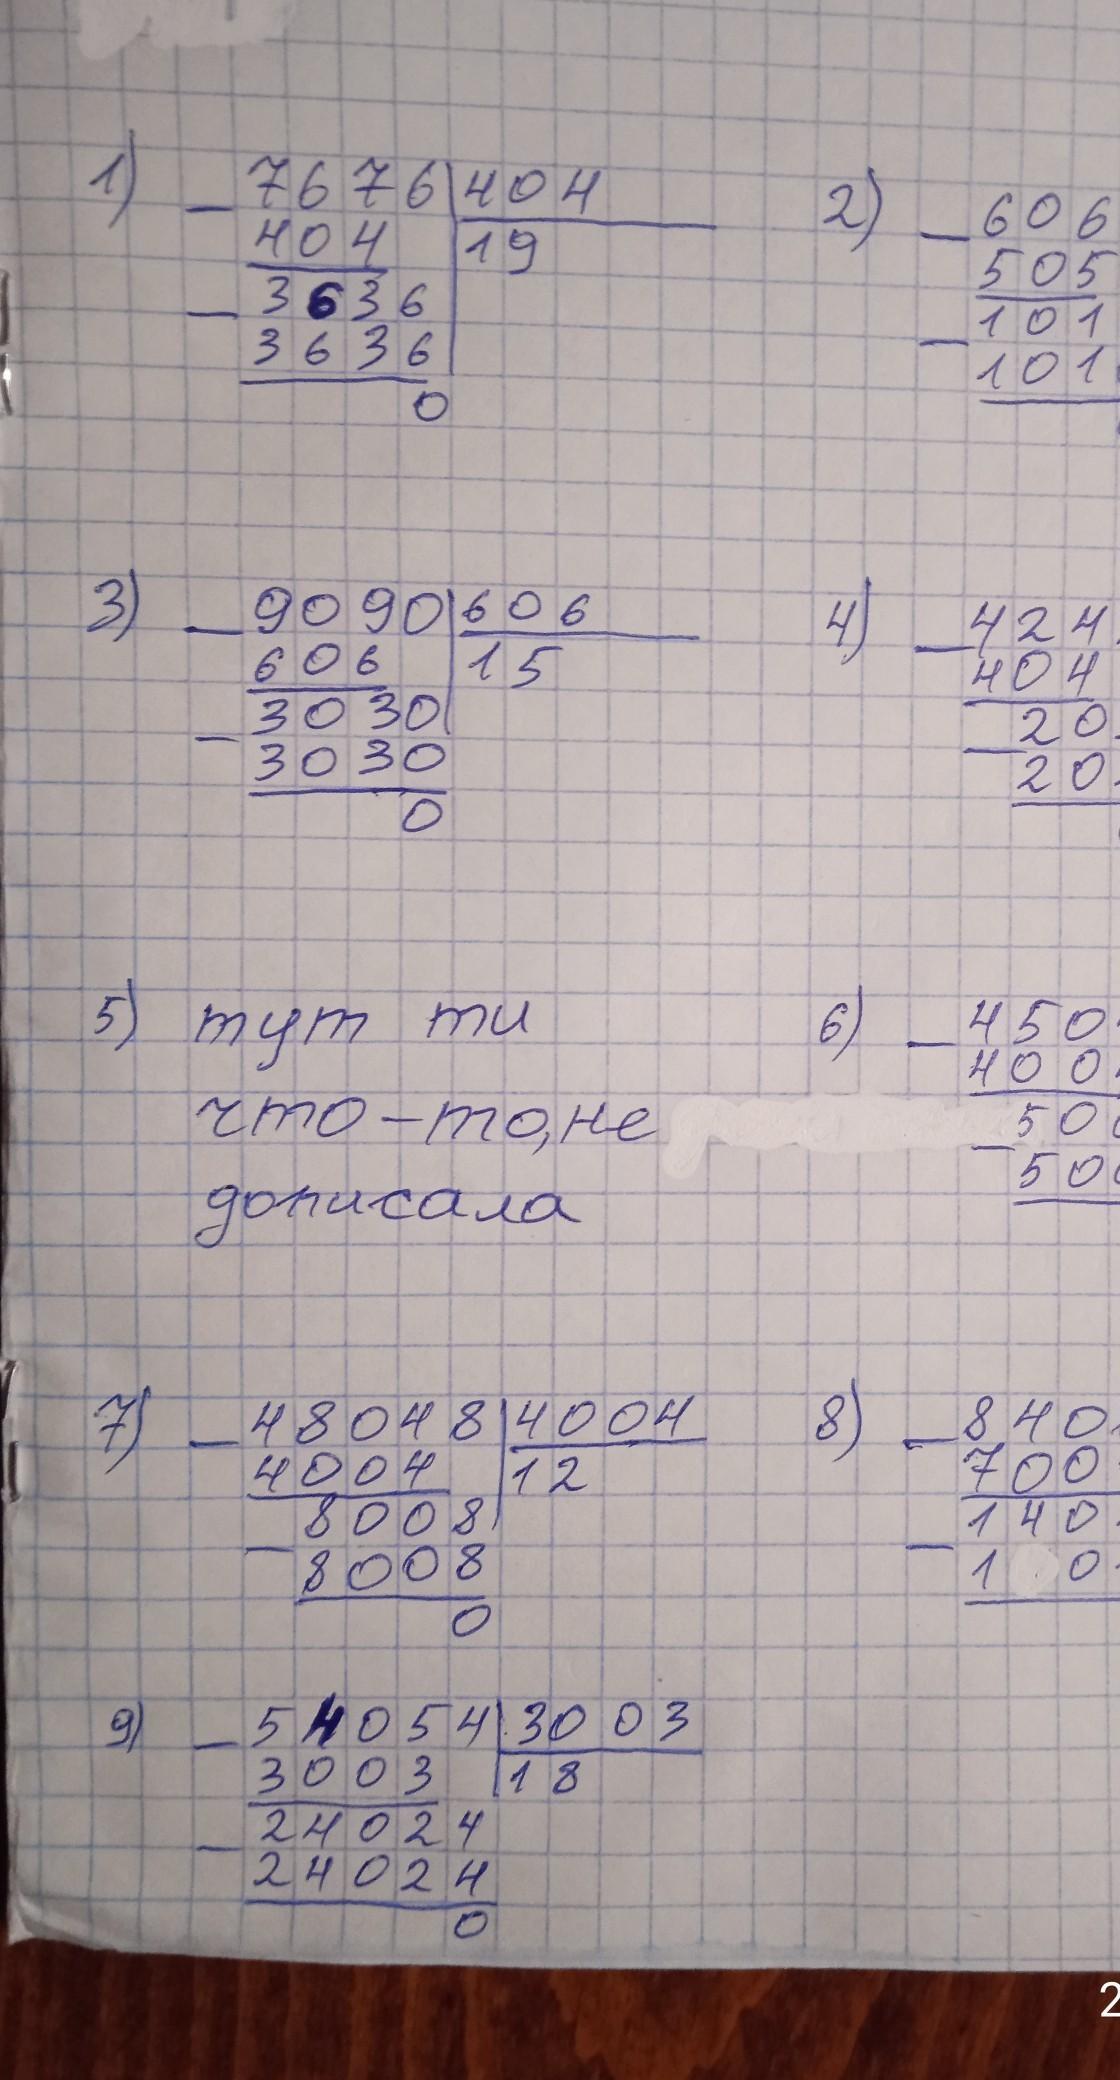 1) _ 7676 | 404
404 | 19
_ 3636
3636
0
2) _ 606
505
_ 101
101
3) _ 9090 | 606
606 | 15
_ 3030
3030
0
4) _ 424
404
_ 20
20
5) тут ти
что-то, не
дописала
6) _ 450
400
_ 500
500
7) _ 48048 | 4004
4004 | 12
_ 8008
8008
0
8) _ 840
700
_ 140
1 0
9) _ 54054 | 3003
3003 | 18
_ 24024
24024
0
2